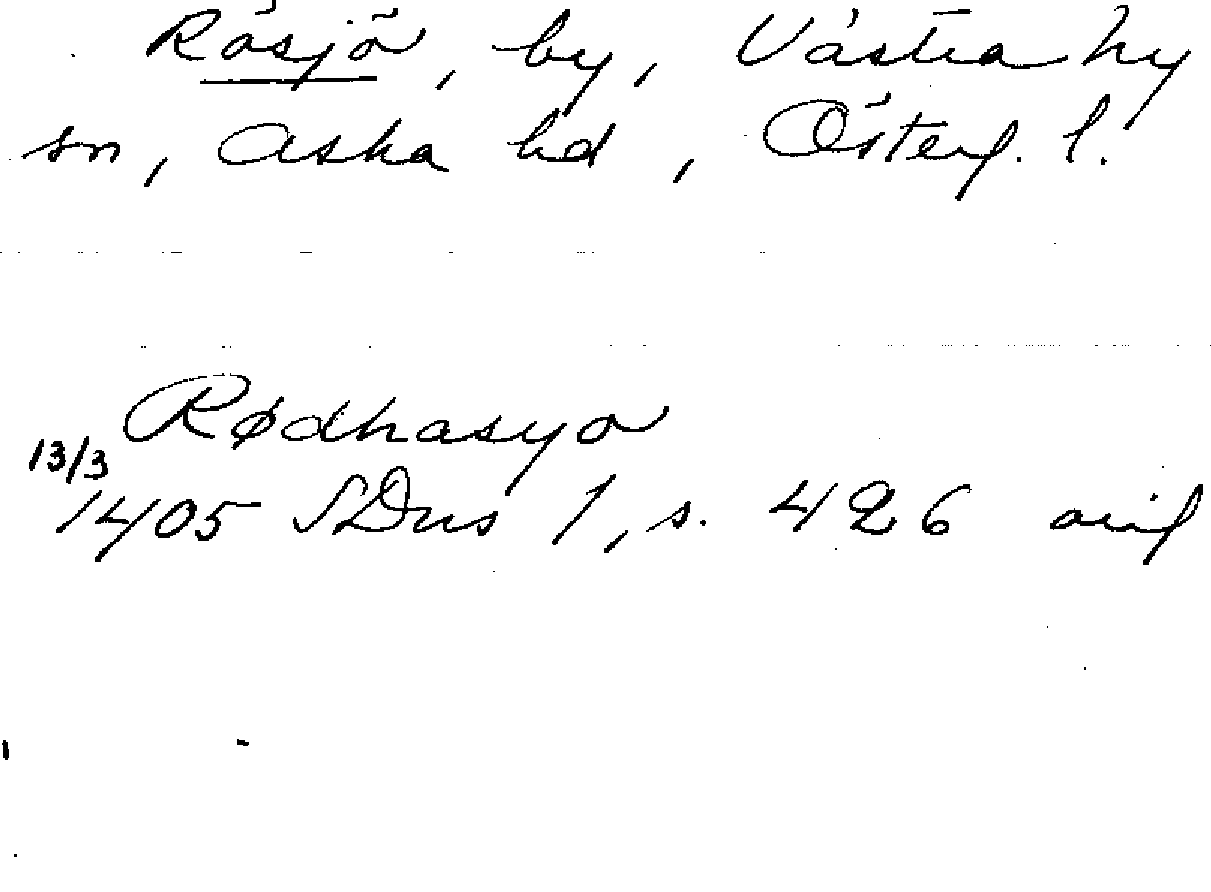 Rösjö, by, Västra Ny
sn, Aska hd, Österg. l.
Rødhasyo
13/3
1405 SDns 1, s. 426 avskr